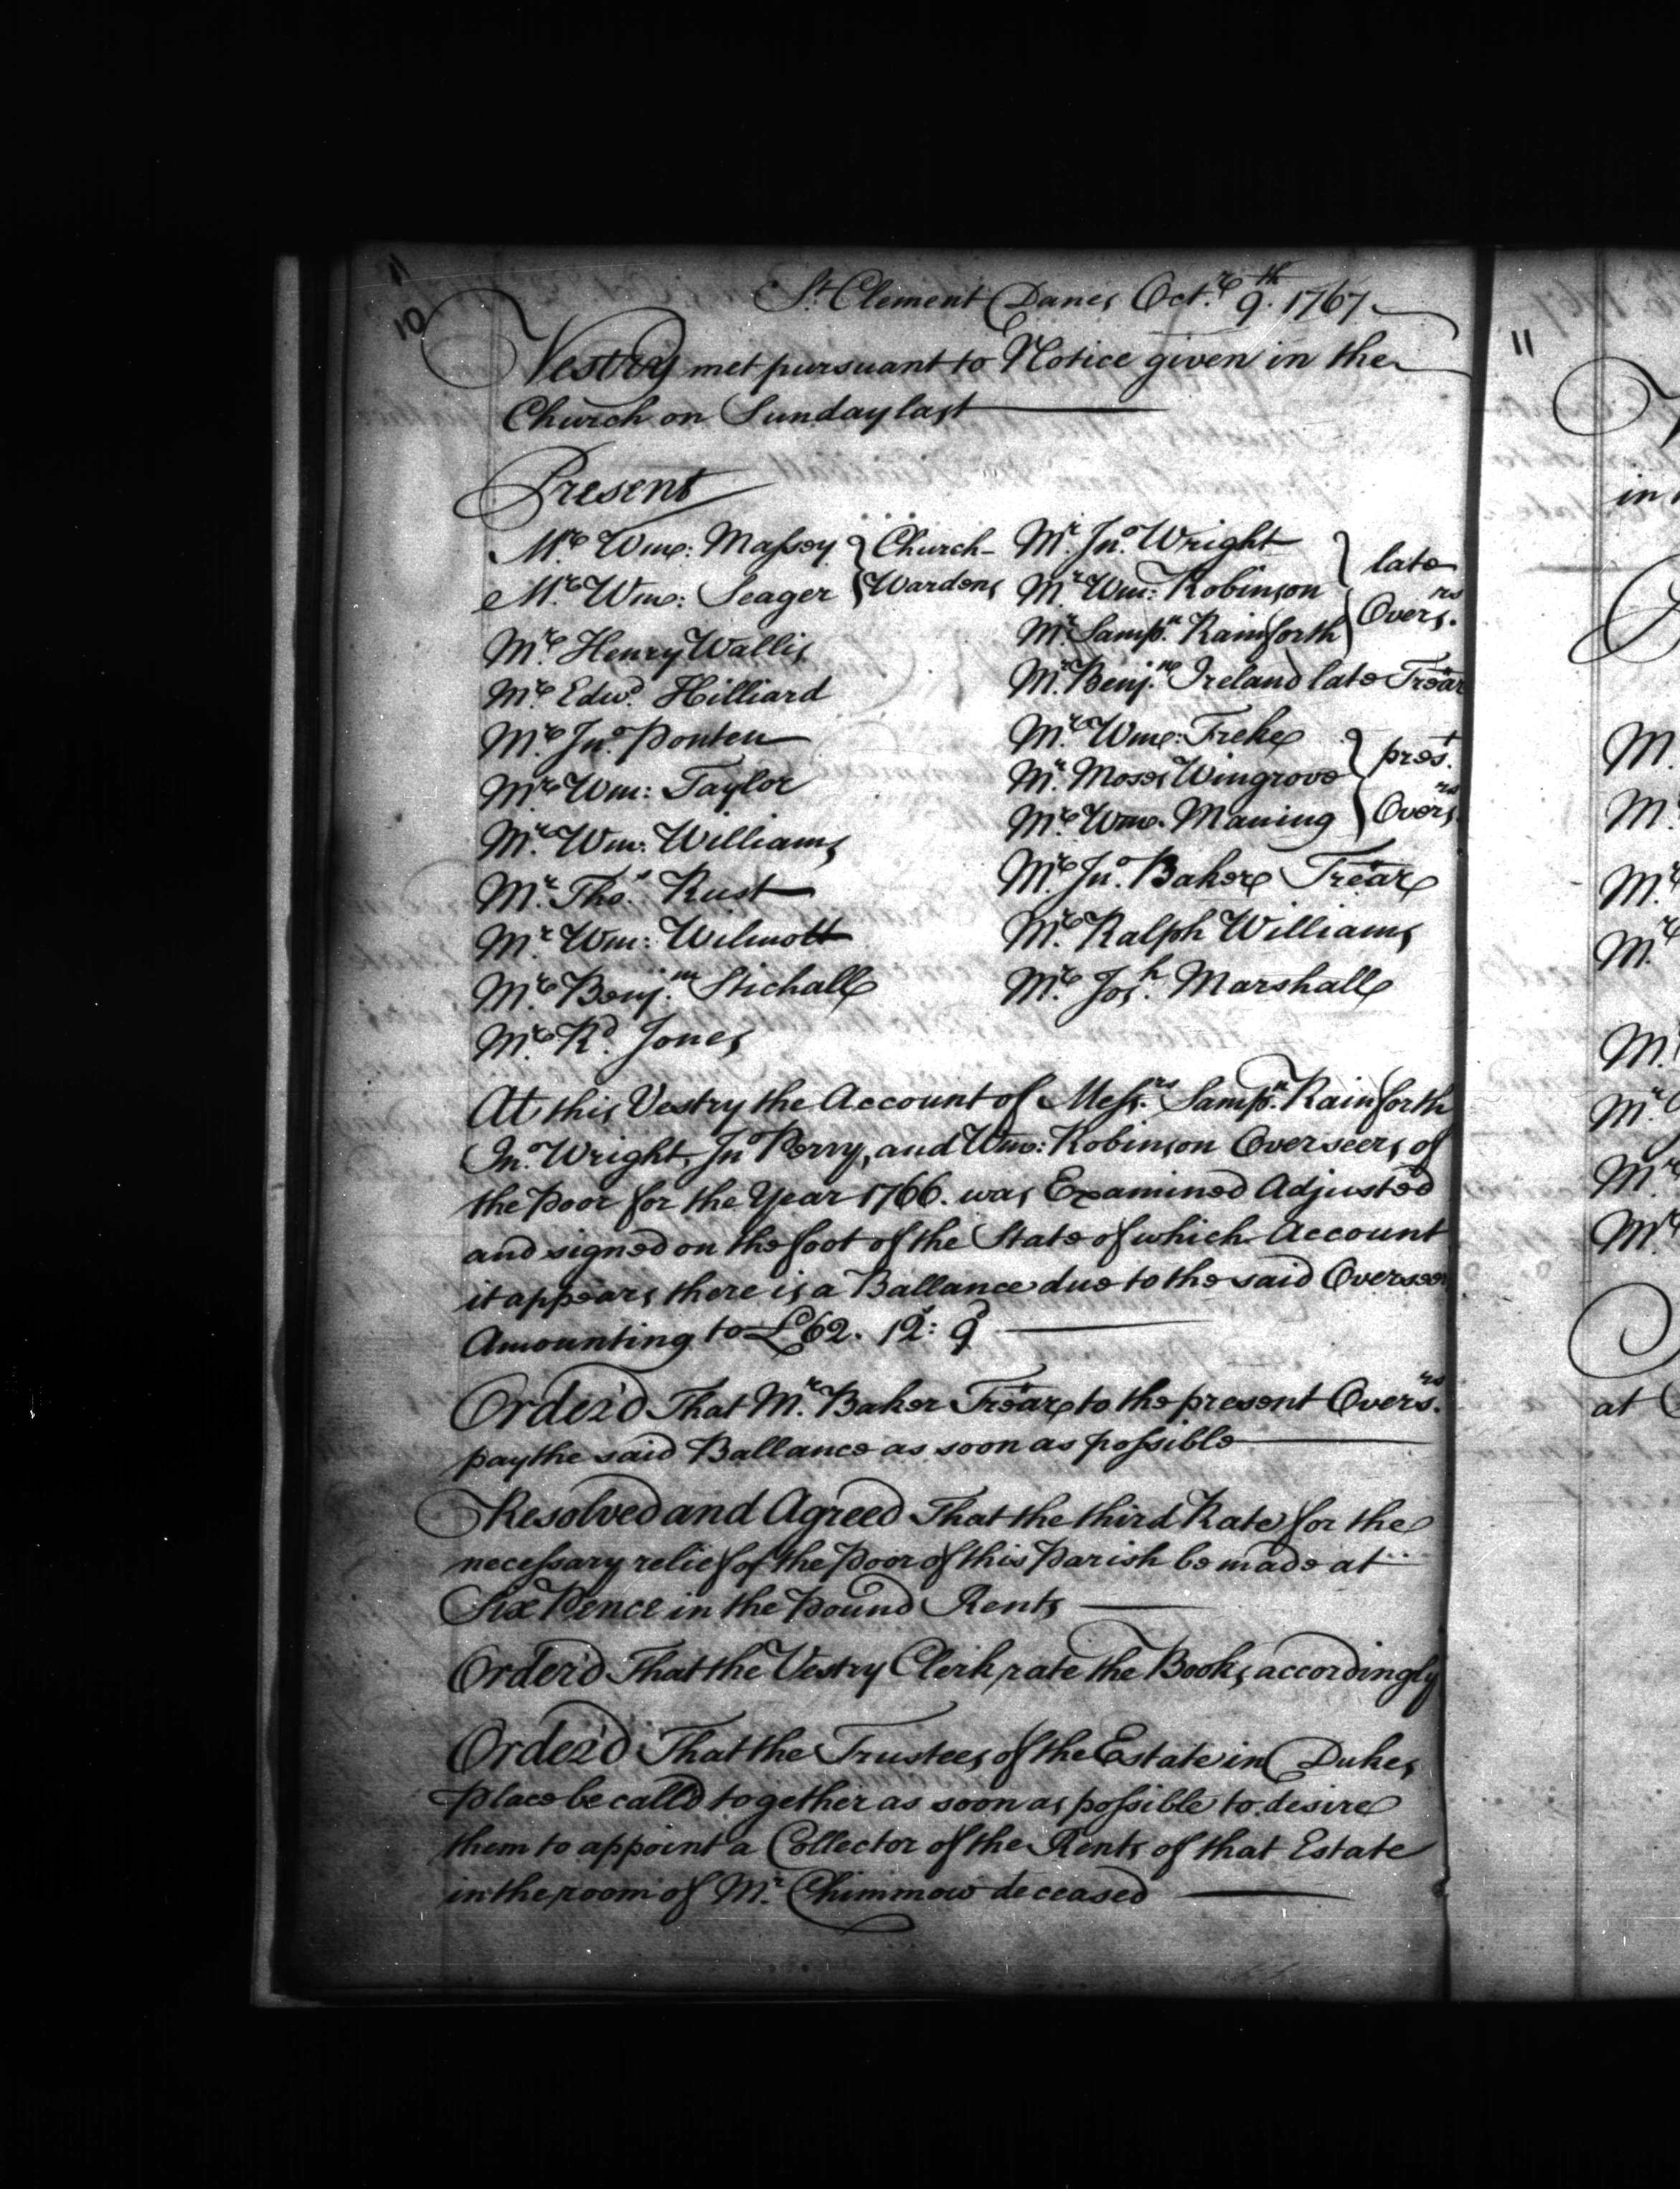 10
St. Clement Danes Octr. 9th. 1767
Vestry met pursuant to Notice given in the
Church on Sunday last
Present
Mr. Wm: Massey } Church-
Mr. Wm: Seager } Wardens
Mr. Henry Wallis
Mr. Edwd. Hilliard
Mr. Jno. Ponten
Mr. Wm: Taylor
Mr. Wm. Williams
Mr. Thos. Rust
Mr. Wm: Wilmott
Mr. Benjn. Stichall
Mr. Rd. Jones
Mr. Jno. Wright
Mr. Wm: Robinson } late
Mr. Sampn. Rainsforth } Overs.rs
Mr. Benjn. Ireland late Trear
Mr. Wm: Freke
Mr. Moses Wingrove } prest.
Mr. Wm. Maning } Overs.rs
Mr. Jno. Baker Trear
Mr. Ralph Williams
Mr. Josh. Marshall
At this Vestry the Account of Messrs. Sampn. Rainsforth
Jno. Wright, Jno Perry, and Wm: Robinson Overseers of
the Poor for the Year 1766. was Examined Adjusted
and signed on the foot of the State of which Account
it appears there is a Ballance due to the said Overseers
Amounting to £62. 12s: 9d
Order'd That Mr. Baker Trear to the present Overs.rs
pay the said Ballance as soon as possible
Resolved and Agreed That the third Rate for the
necessary relief of the Poor of this Parish be made at
Six Pence in the Pound Rents
Order'd That the Vestry Clerk rate the Books accordingly
Order'd That the Trustees of the Estate in Dukes
Place be call'd together as soon as possible to desire
them to appoint a Collector of the Rents of that Estate
in the room of Mr. Chimmow deceased
11
in
M.
Mr.
Mr.
Mr.
M.
Mr.
Mr.
Mr.
at